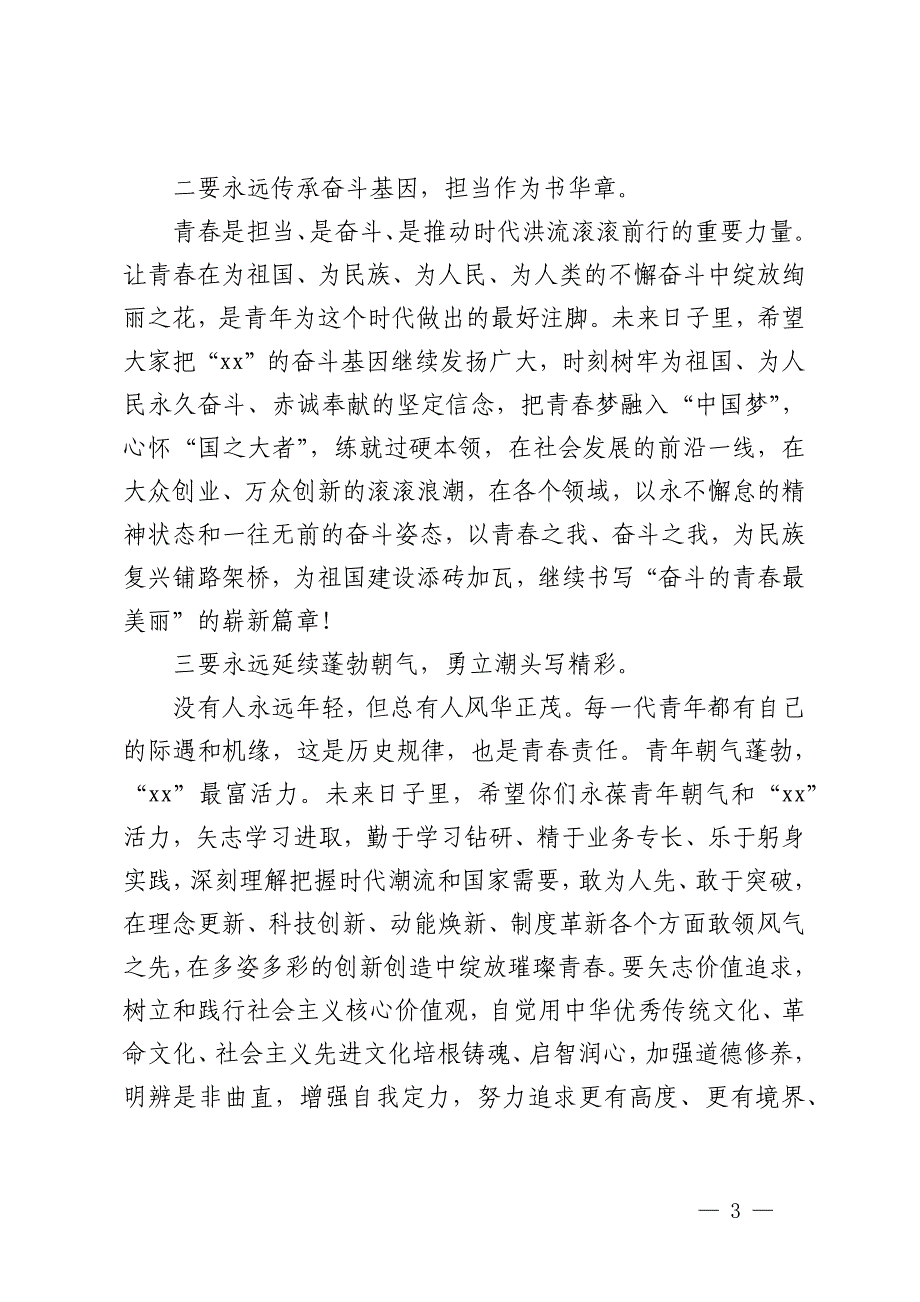 二要永远传承奋斗基因，担当作为书华章。
青春是担当、是奋斗、是推动时代洪流滚滚前行的重要力量。
让青春在为祖国、为民族、为人民、为人类的不懈奋斗中绽放绚
丽之花，是青年为这个时代做出的最好注脚。未来日子里，希望
大家把“xx”的奋斗基因继续发扬广大，时刻树牢为祖国、为人
民永久奋斗、赤诚奉献的坚定信念，把青春梦融入“中国梦”，
心怀“国之大者”，练就过硬本领，在社会发展的前沿一线，在
大众创业、万众创新的滚滚浪潮，在各个领域，以永不懈怠的精
神状态和一往无前的奋斗姿态，以青春之我、奋斗之我，为民族
复兴铺路架桥，为祖国建设添砖加瓦，继续书写“奋斗的青春最
美丽”的崭新篇章！
三要永远延续蓬勃朝气，勇立潮头写精彩。
没有人永远年轻，但总有人风华正茂。每一代青年都有自己
的际遇和机缘，这是历史规律，也是青春责任。青年朝气蓬勃，
“xx”最富活力。未来日子里，希望你们永葆青年朝气和“xx”
活力，矢志学习进取，勤于学习钻研、精于业务专长、乐于躬身
实践，深刻理解把握时代潮流和国家需要，敢为人先、敢于突破，
在理念更新、科技创新、动能焕新、制度革新各个方面敢领风气
之先，在多姿多彩的创新创造中绽放璀璨青春。要矢志价值追求，
树立和践行社会主义核心价值观，自觉用中华优秀传统文化、革
命文化、社会主义先进文化培根铸魂、启智润心，加强道德修养，
明辨是非曲直，增强自我定力，努力追求更有高度、更有境界、
— 3 —